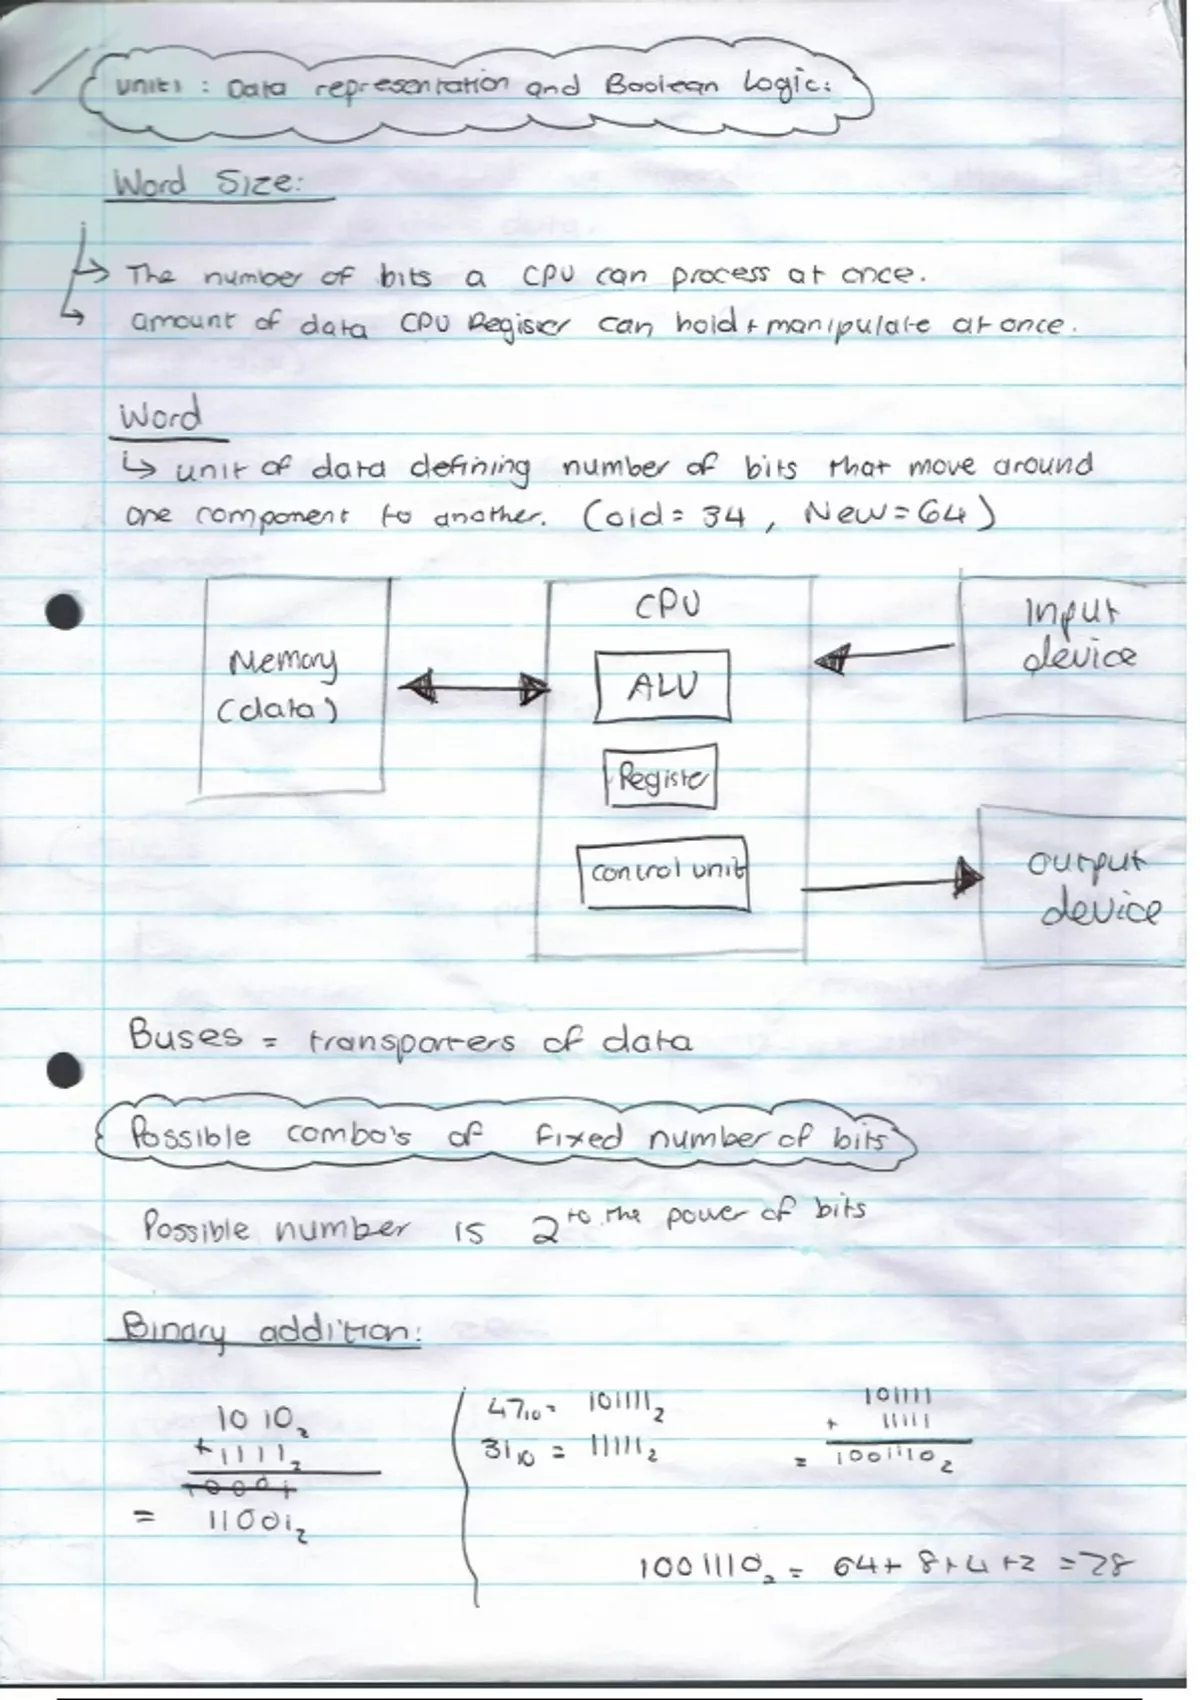 Unit 1 : Data representation and Boolean Logic:
Word Size:
↳ The number of bits a CPU can process at once.
↳ amount of data CPU Register can hold + manipulate at once.
Word
↳ unit of data defining number of bits that move around
one component to another. (old = 34 , New = 64)
Memory
(data)
CPU
ALU
Register
control unit
Input
device
output
device
Buses = transporters of data
Possible combo's of fixed number of bits
Possible number is 2 to the power of bits
Binary addition:
1010₂
+1111₂
10001
= 11001₂
47₁₀ = 101111₂
31₁₀ = 11111₂
101111
+ 11111
= 1001110₂
1001110₂ = 64 + 8 + 4 + 2 = 78